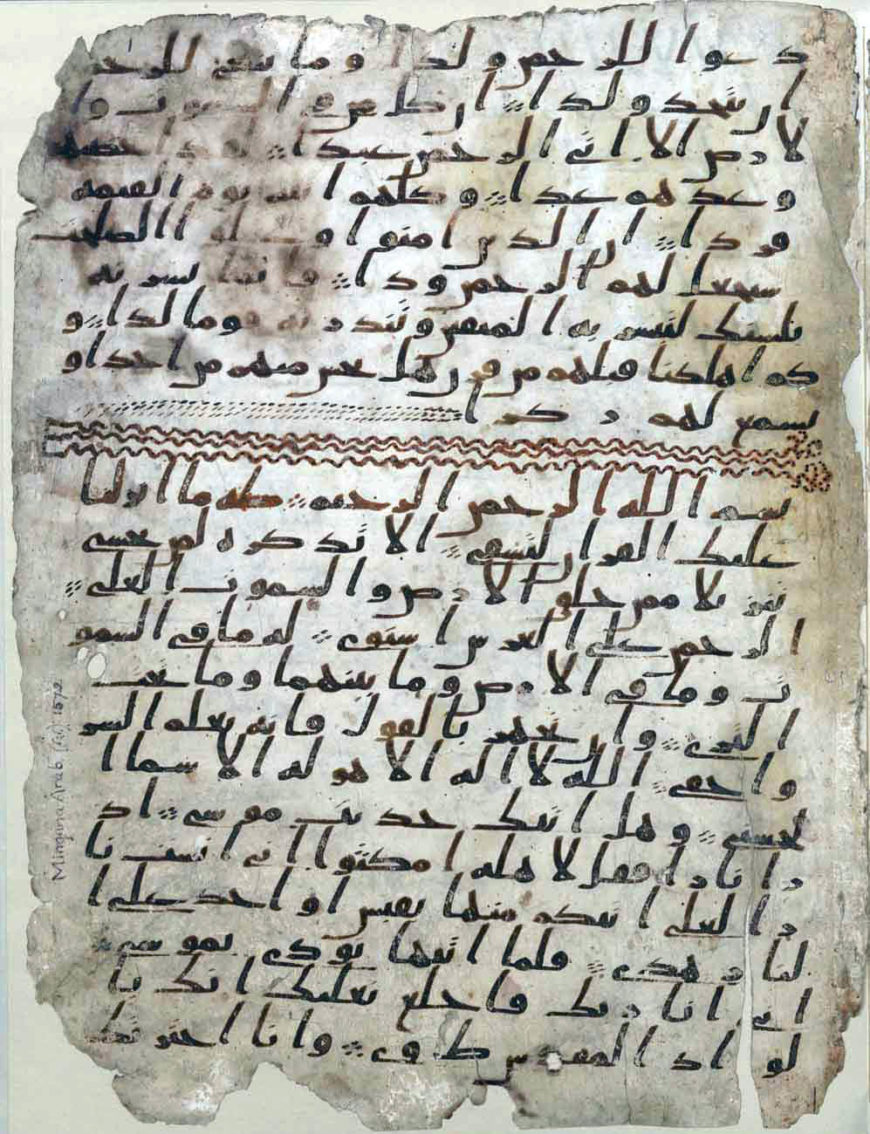 دعوا للرحمن ولدا وما ينبغي للرحمن
ان يتخذ ولدا ان كل من في السموت وا
لارض الا اتي الرحمن عبدا لقد احصهم
وعدهم عدا وكلهم اتيه يوم القيمه
فردا ان الذين امنوا وعملوا الصلحت
سيجعل لهم الرحمن ودا فانما يسرنه
بلسنك لتبشر به المتقين وتنذر به قوما لدا و
كم اهلكنا قبلهم من قرن هل تحس منهم من احد او
تسمع لهم ركزا
بسم الله الرحمن الرحيم طه ما انزلنا
عليك القران لتشقى الا تذكره لمن يخشى
تنزيلا ممن خلق الارض والسموت العلى
الرحمن على العرش استوى له ما في السمو
ت وما في الارض وما بينهما وما تحت
الثرى وان تجهر بالقول فانه يعلم السر
واخفى الله لا اله الا هو له الاسما ا
لحسنى وهل اتيك حديث موسى اذ
را نارا فقل لاهله امكثوا اني انست نا
را لعلي اتيكم منها بقبس او اجد على ا
لنار هدى فلما اتيها نودي يموسى
اني انا ربك فاخلع نعليك انك با
لواد المقدس طوى وانا اخترتك
Mingana Arab. (Isl.) 1572